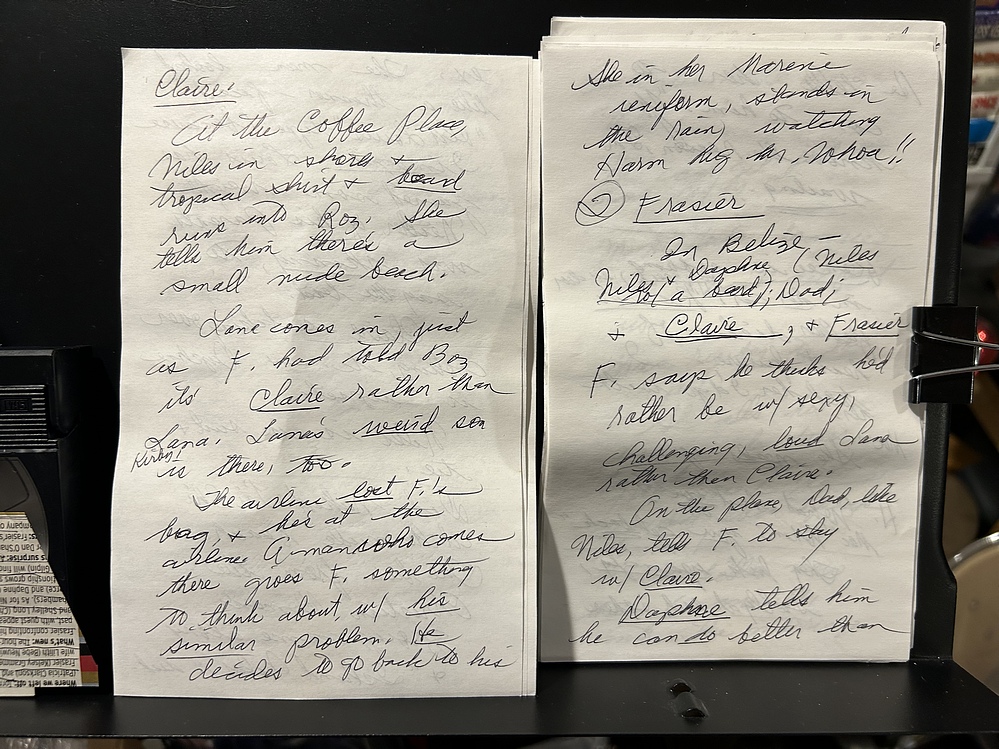 Claire.
At the Coffee Place,
Niles in shorts +
tropical shirt + beard
runs into Roz. She
tells him there's a
small nude beach.
Lana comes in, just
as F. had told Roz
it's Claire rather than
Lana. Lana's weird son
Kirby,
is there, too.
The airline lost F.'s
bag, + he's at the
airline. A man who comes
there gives F. something
to think about, w/ his
similar problem. He
decides to go back to his
She in her Marine
uniform, stands in
the rain, watching
Harm hug her. Whoa!!
② Frasier
In Belize —
Daphne (Niles
Niles w/ a beard); Dad;
+ Claire, + Frasier
F. says he thinks he'd
rather be w/ sexy,
challenging, loud Lana
rather than Claire.
On the plane, Dad, like
Niles, tells F. to stay
w/ Claire.
Daphne tells him
he can do better than
Where we left off:
(Patricia Clarkson) and
Frasier (Kelsey Grammer)
wife Lilith (Bebe Neuwirth)
What's new: The hour
Frasier confronting his
past guest appearances
and Shelley Long